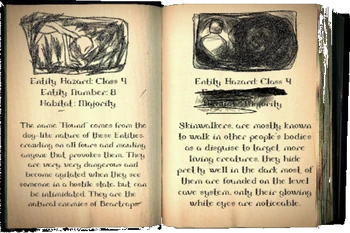 Entity Hazard: Class 4
Entity Number: 8
Habitat: Majority
The name "Hound" comes from the
dog-like nature of these Entities,
crawling on all fours and mauling
anyone that provokes them. They
are very, very dangerous and
become agitated when they see
someone in a hostile state, but can
be intimidated. They are the
natural enemies of
Entity Hazard: Class 4
Majority
Skinwalkers, are mostly known
to walk in other people's bodies
as a disguise to target more
living creatures, they hide
pretty well in the dark, most of
them are founded on the level
cave system, only their glowing
white eyes are noticeable.